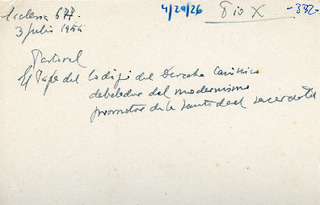 Ecclesia 677. 4/20/26 Pio X -332-
3 Julio 1954
Pastoral
El Papa del Codigo del Derecho Canónico
debelador del modernismo
promotor de la santidad sacerdotal